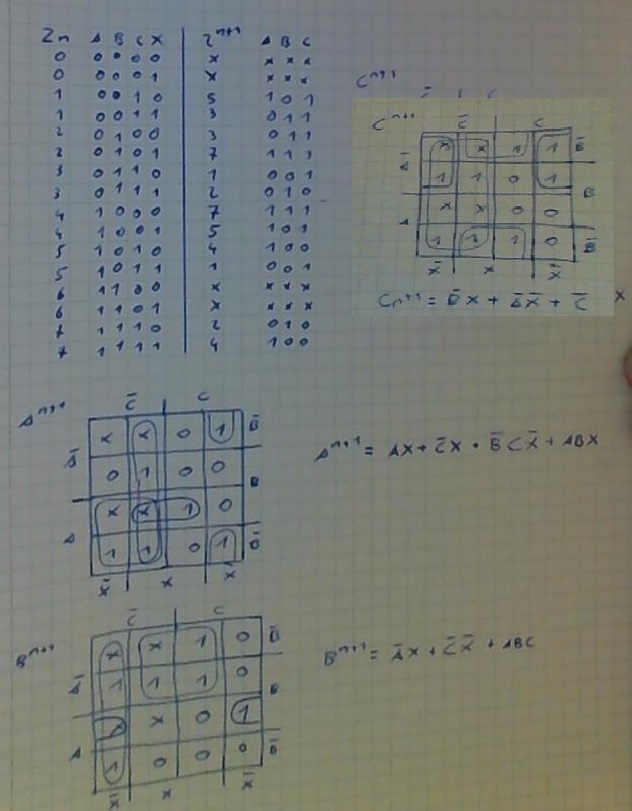 Zn A B C X Z^n+1 A B C
0 0 0 0 0 x x x x
0 0 0 0 1 x x x x
1 0 0 1 0 5 1 0 1
1 0 0 1 1 3 0 1 1
2 0 1 0 0 3 0 1 1
2 0 1 0 1 7 1 1 1
3 0 1 1 0 1 0 0 1
3 0 1 1 1 2 0 1 0
4 1 0 0 0 7 1 1 1
4 1 0 0 1 5 1 0 1
5 1 0 1 0 4 1 0 0
5 1 0 1 1 1 0 0 1
6 1 1 0 0 x x x x
6 1 1 0 1 x x x x
7 1 1 1 0 2 0 1 0
7 1 1 1 1 4 1 0 0
C^n+1
C^n+1
C̄ C
Ā x x 1 1 B̄
1 1 0 1 B
A x x 0 0
1 1 1 0 B̄
X̄ X X̄
Cn+1 = B̄X + ĀX̄ + C̄ X
A^n+1
C̄ C
x x 0 1 B̄
Ā 0 1 0 0
x x 1 0 B
A 1 1 0 1 B̄
X̄ X X̄
A^n+1 = AX + C̄X + B̄CX̄ + ABX
B^n+1
C̄ C
x x 1 0 B̄
Ā 1 1 1 0 B
x x 0 1
A 1 0 0 0 B̄
X̄ X X̄
B^n+1 = ĀX + C̄X̄ + ABC